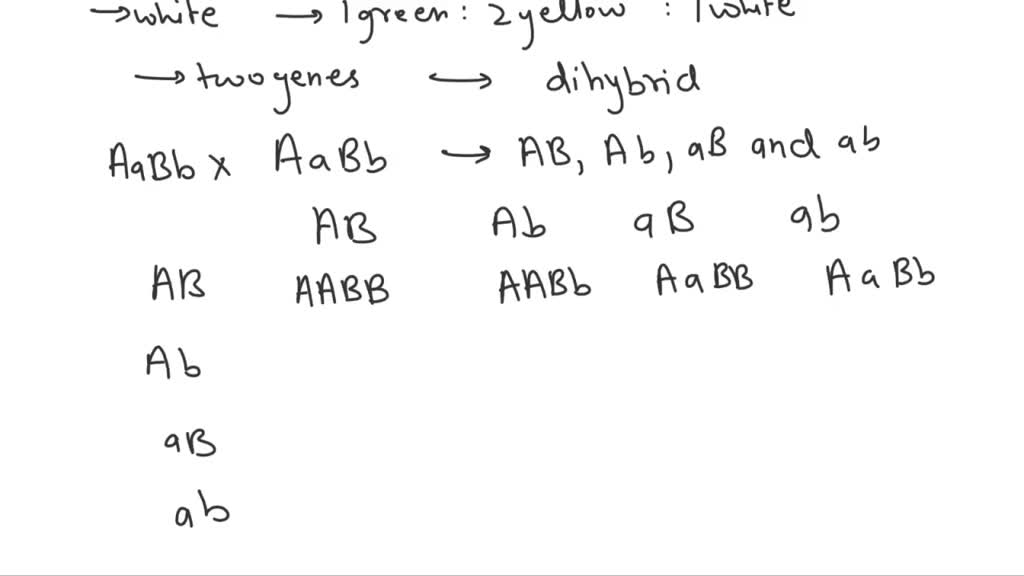 →white → 1 green : 2 yellow : 1 white
→ two genes ↔ dihybrid
AaBb x AaBb → AB, Ab, aB and ab
AB Ab aB ab
AB AABB AABb AaBB AaBb
Ab
aB
ab